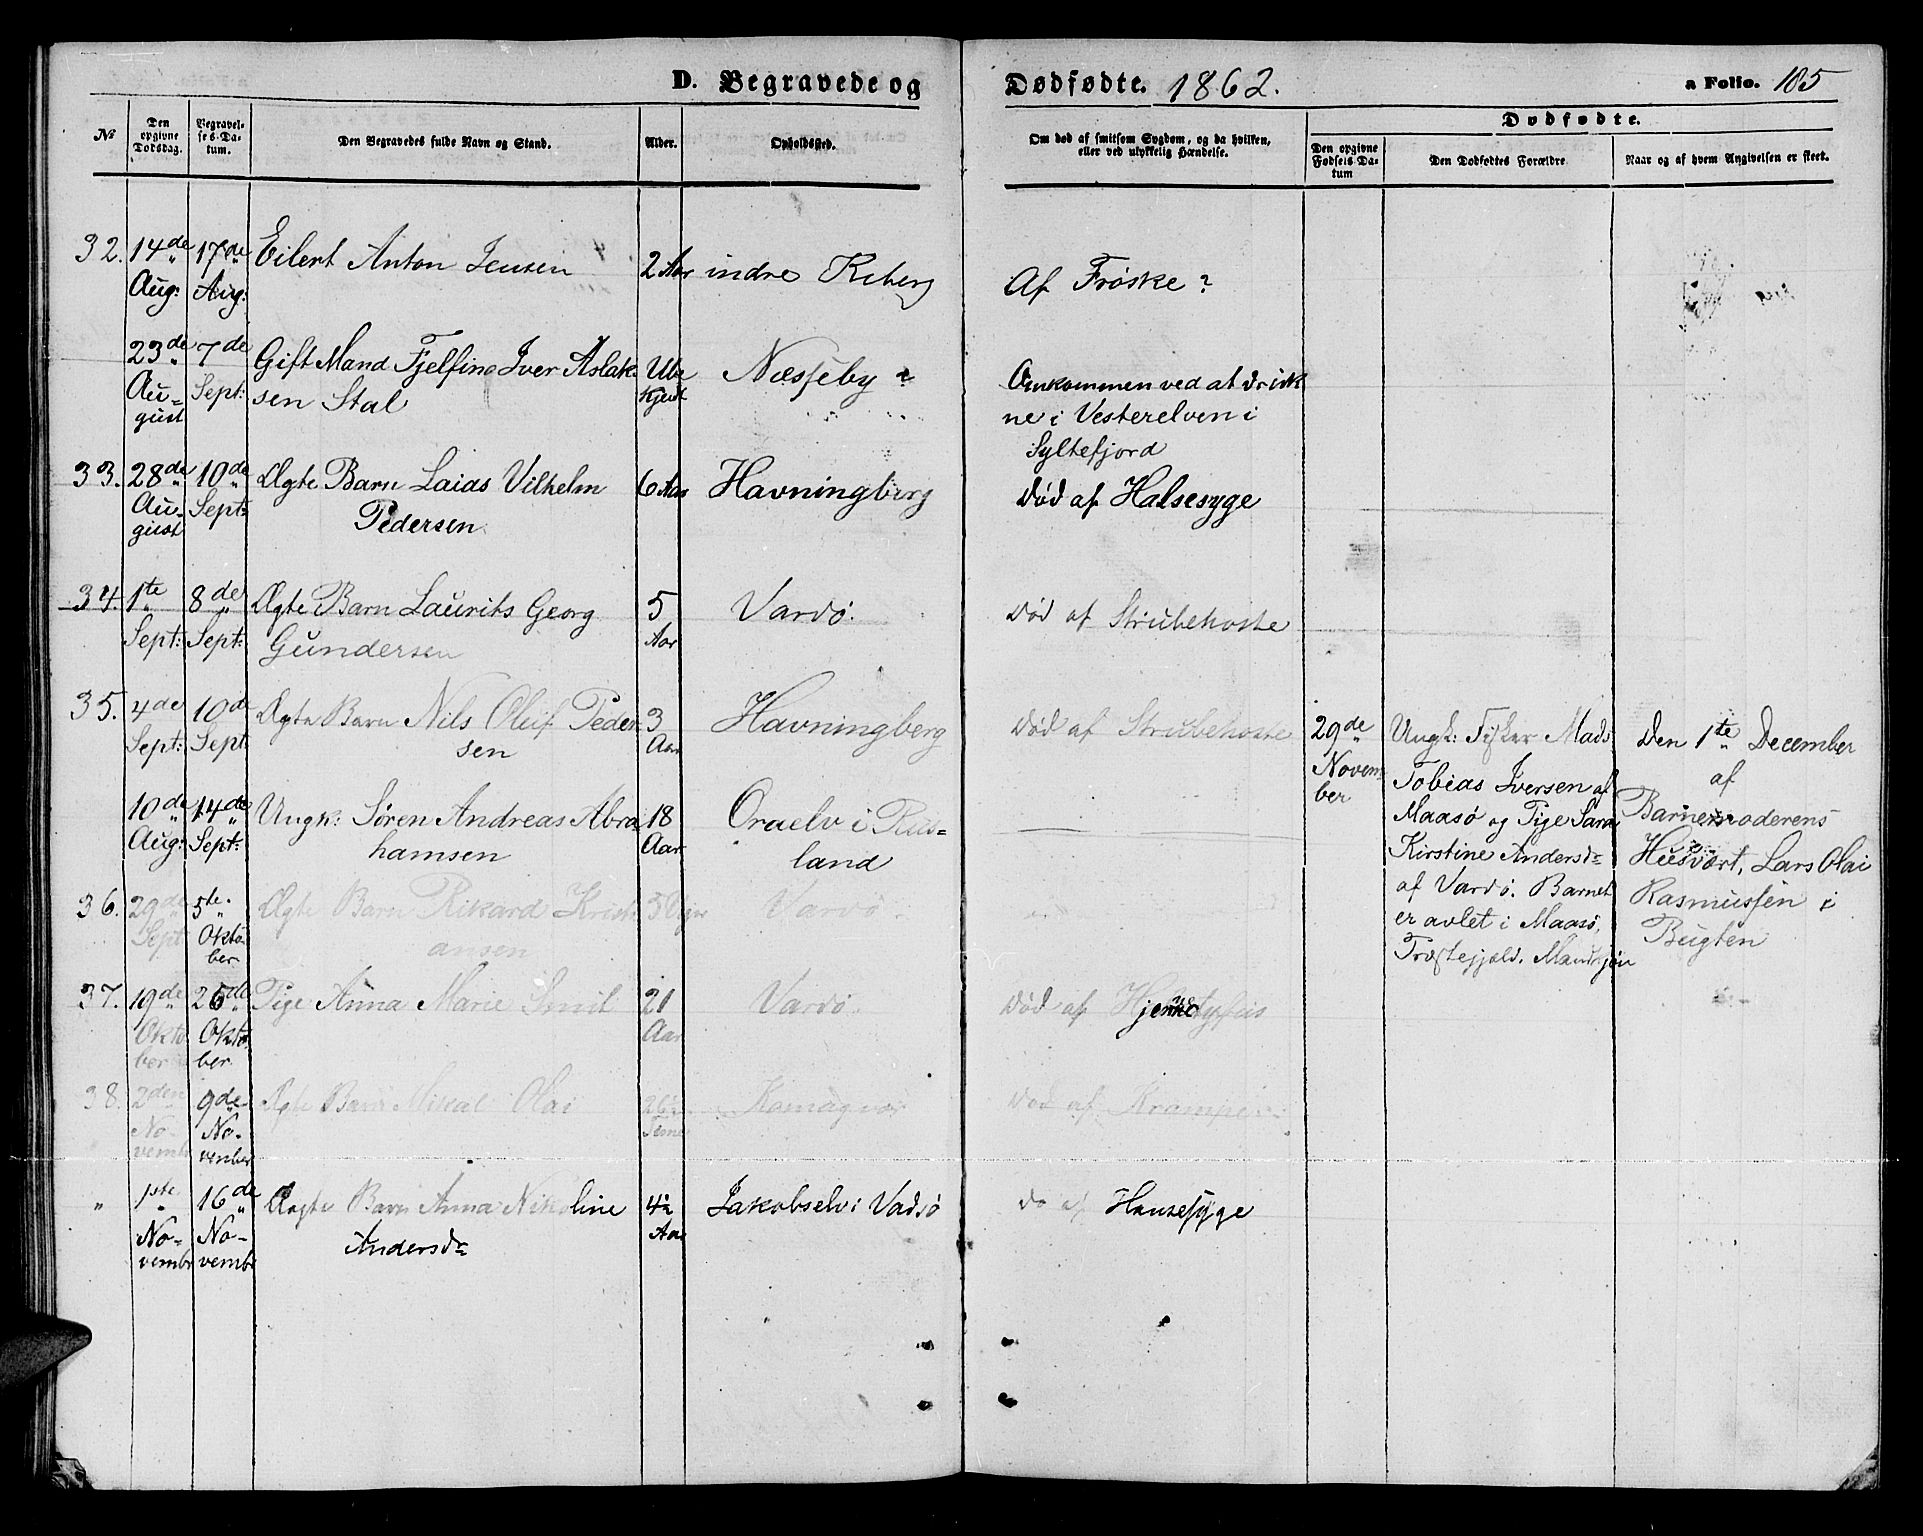 D. Begravede og Dødfødte. 1862. a Folio. 185
No
Den opgivne Dødsdag.
Begravelses-Datum.
Den Begravedes fulde Navn og Stand.
Alder.
Opholdssted.
Om død af smitsom Sygdom, og da hvilken, eller ved ulykkelig Hændelse.
Dødfødte.
Den opgivne Fødsels-Datum
Den Dødfødtes Forældre
Naar og af hvem Angivelsen er skeet.
32. 14de Aug: 17de Aug: Eilert Anton Jensen 2 Aar indre Kiberg Af Frøske ?
23de August 7de Sept: Gift Mand Fjelfin Iver Aslak-
sen Stal Ube kjendt Næsseby ? Omkommen ved at drikk
ne i Vesterelven i
Syltefjord
33. 28de August 10de Sept: Ægte Barn Laias Vilhelm
Pedersen 6 Aar Havningberg Død af Halsesyge
34. 1te Sept: 8de Sept: Ægte Barn Laurits Georg
Gundersen 5 Aar Vardø. Død af Strubehoste
35. 4de Sept: 10de Sept Ægte Barn Nils Oleif Peder
sen 3 Aar Havningberg Død af Strubehoste
10de Aug: 14de Sept: Ungk: Søren Andreas Abra
hamsen 18 Aar Oraelv i Rus-
land
36. 29de Sept 5te Oktober Ægte Barn Rikard Kristi
ansen 3 Vardø.
37. 19de Oktober 26de Oktober Pige Anna Marie Smil 21 Aar Vardø. Død af Hjernetyfus
38. 2den November 9de November Ægte Barn Mikal Olai Komagvær Død af Kramper
" 1ste Novembr 16de Novembr Ægte Barn Anna Nikoline
Andersdr 4½ Aar Jakobselv i Vadsø do af Hausesyge
29de
Novem
ber
Ungk: Fisker Mads
Tobias Iversen af
Maasø og Pige Sara
Kirstine Andersdr
af Vardø. Barnet
er avlet i Maasø,
Præstegjæld.
Den 1te December
af
Barnemoderens
Husvært, Lars Olai
Rasmussen i
Bugten